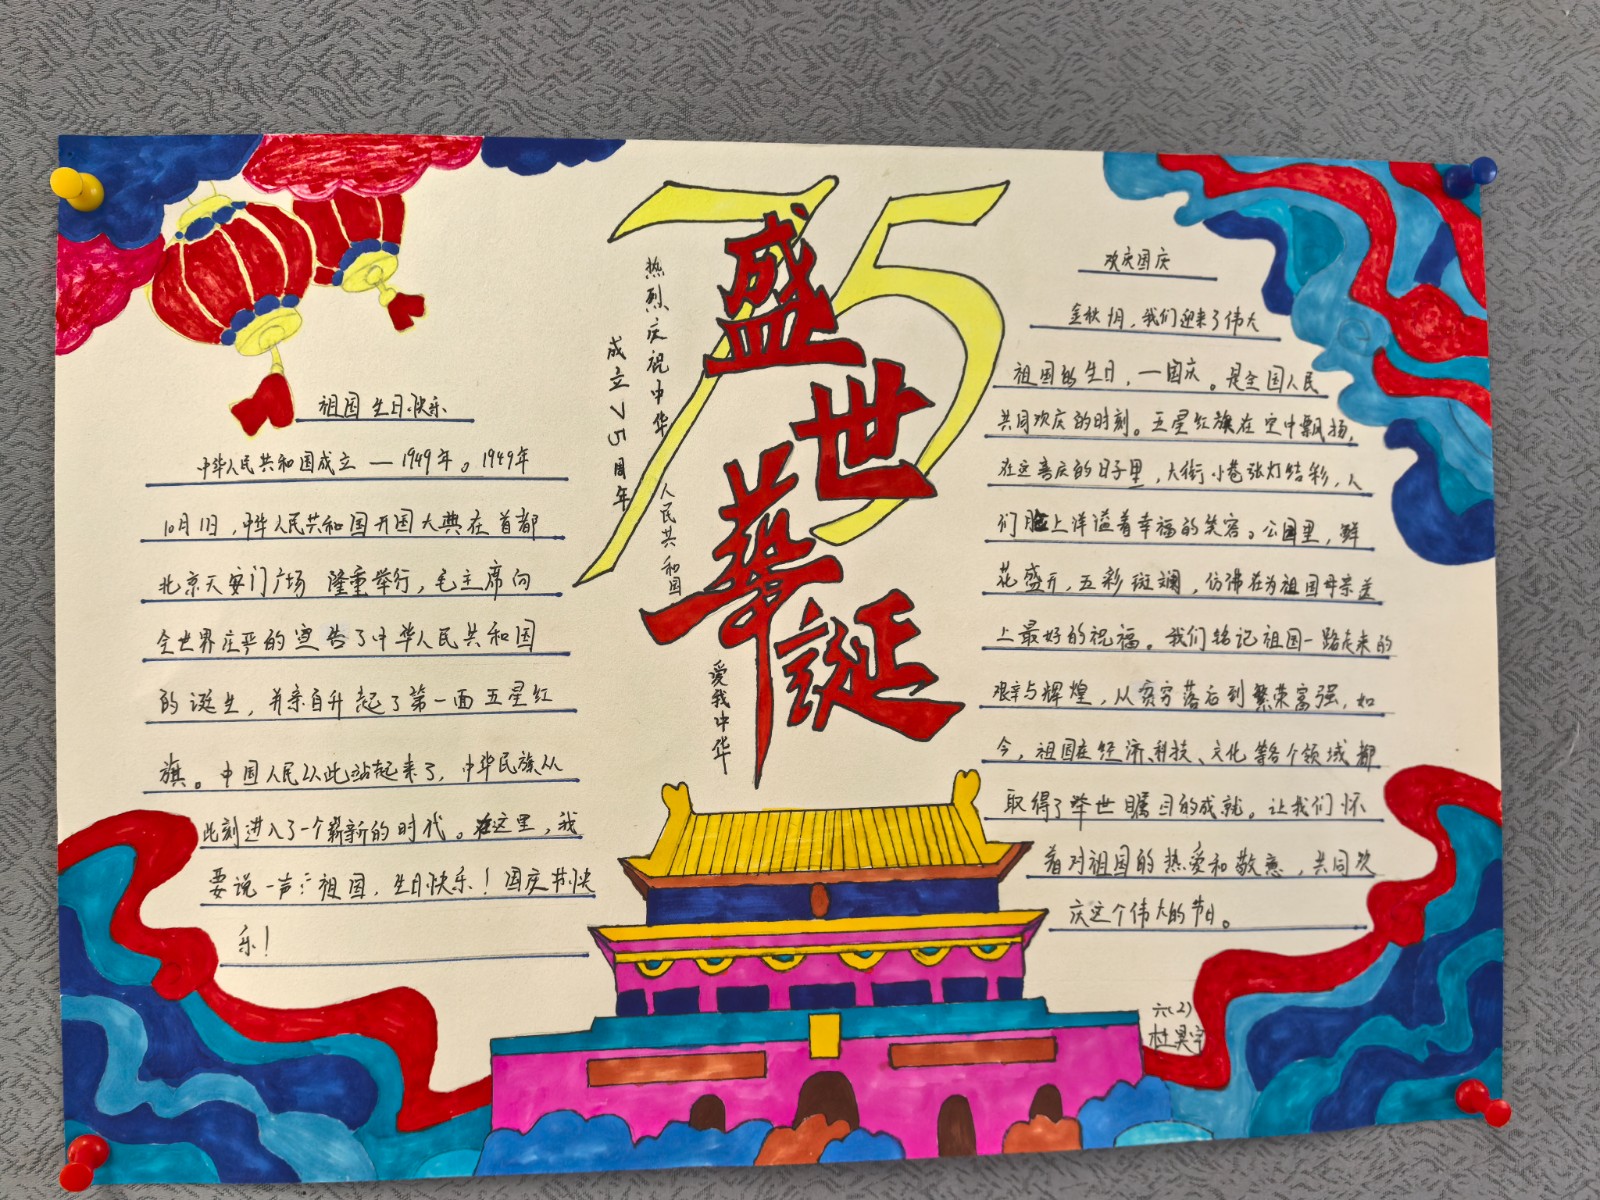 75
盛世華誕
热烈庆祝中华
人民共和国
成立75周年
爱我中华
祖国生日快乐
中华人民共和国成立—1949年。1949年
10月1日,中华人民共和国开国大典在首都
北京天安门广场 隆重举行,毛主席向
全世界庄严的宣告了中华人民共和国
的诞生,并亲自升起了第一面五星红
旗。中国人民从此站起来了,中华民族从
此刻进入了一个崭新的时代。在这里,我
要说一声:祖国,生日快乐!国庆节快
乐!
欢庆国庆
金秋十月,我们迎来了伟大
祖国的生日,—国庆。是全国人民
共同欢庆的时刻。五星红旗在空中飘扬,
在这喜庆的日子里,大街小巷张灯结彩,人
们脸上洋溢着幸福的笑容。公园里,鲜
花盛开,五彩斑斓,仿佛在为祖国母亲送
上最好的祝福。我们铭记祖国一路走来的
艰辛与辉煌,从贫穷落后到繁荣富强,如
今,祖国在经济、科技、文化等各个领域都
取得了举世瞩目的成就。让我们怀
着对祖国的热爱和敬意,共同欢
庆这个伟大的节日。
六(2)
杜昊宇